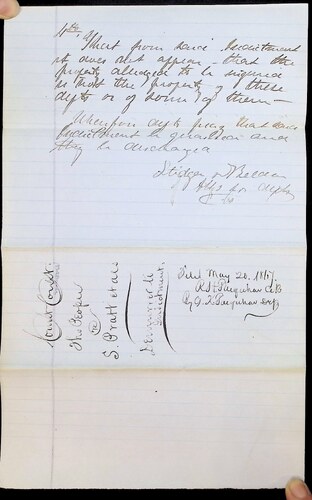 4th
That from said Indictment
it does not appear that the
property alleged to be injured
is not the property of these
defts or of some of them —
Wherefore defts pray that said
Indictment be quashed and
they be discharged
& Belden
Attys for defts
County Court
The People
vs
S. Pratt et als
Demurrer to
Indictment
Filed May 20. 1857.
R H Farquhar Clk
By Farquhar Depy